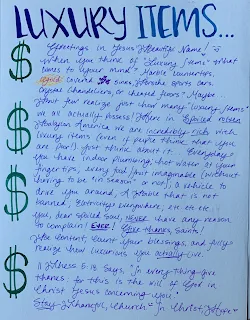 LUXURY ITEMS...
Greetings in Jesus' Beautiful Name!
When you think of "Luxury Items" what
comes to your mind? Marble countertops,
covered cars,
Crystal Chandeliers, or heated floors? Maybe.
But few realize just how many "luxury items"
we all actually possess! Here in Spoiled rotten
America we are incredibly rich with
luxury items (even if people think that you
are "poor"). Just think about it... Everyday
you have indoor plumbing, hot water at your
finger tips, every food/fruit imaginable (without
having to be "in season" or not), a vehicle to
drive you around, A Bible that is not
banned, Electricity everywhere, etc etc etc...
You, dear Spoiled Soul, NEVER have any reason
to complain! EVER! Give thanks, Saints!
Be Content, Count your blessings, and fully
realize how luxurious you actually live.
1 Thess 5:18 Says, "In everything give
thanks for this is the will of God in
Christ Jesus concerning you."
Stay Thankful, Church. In Christ, Hope